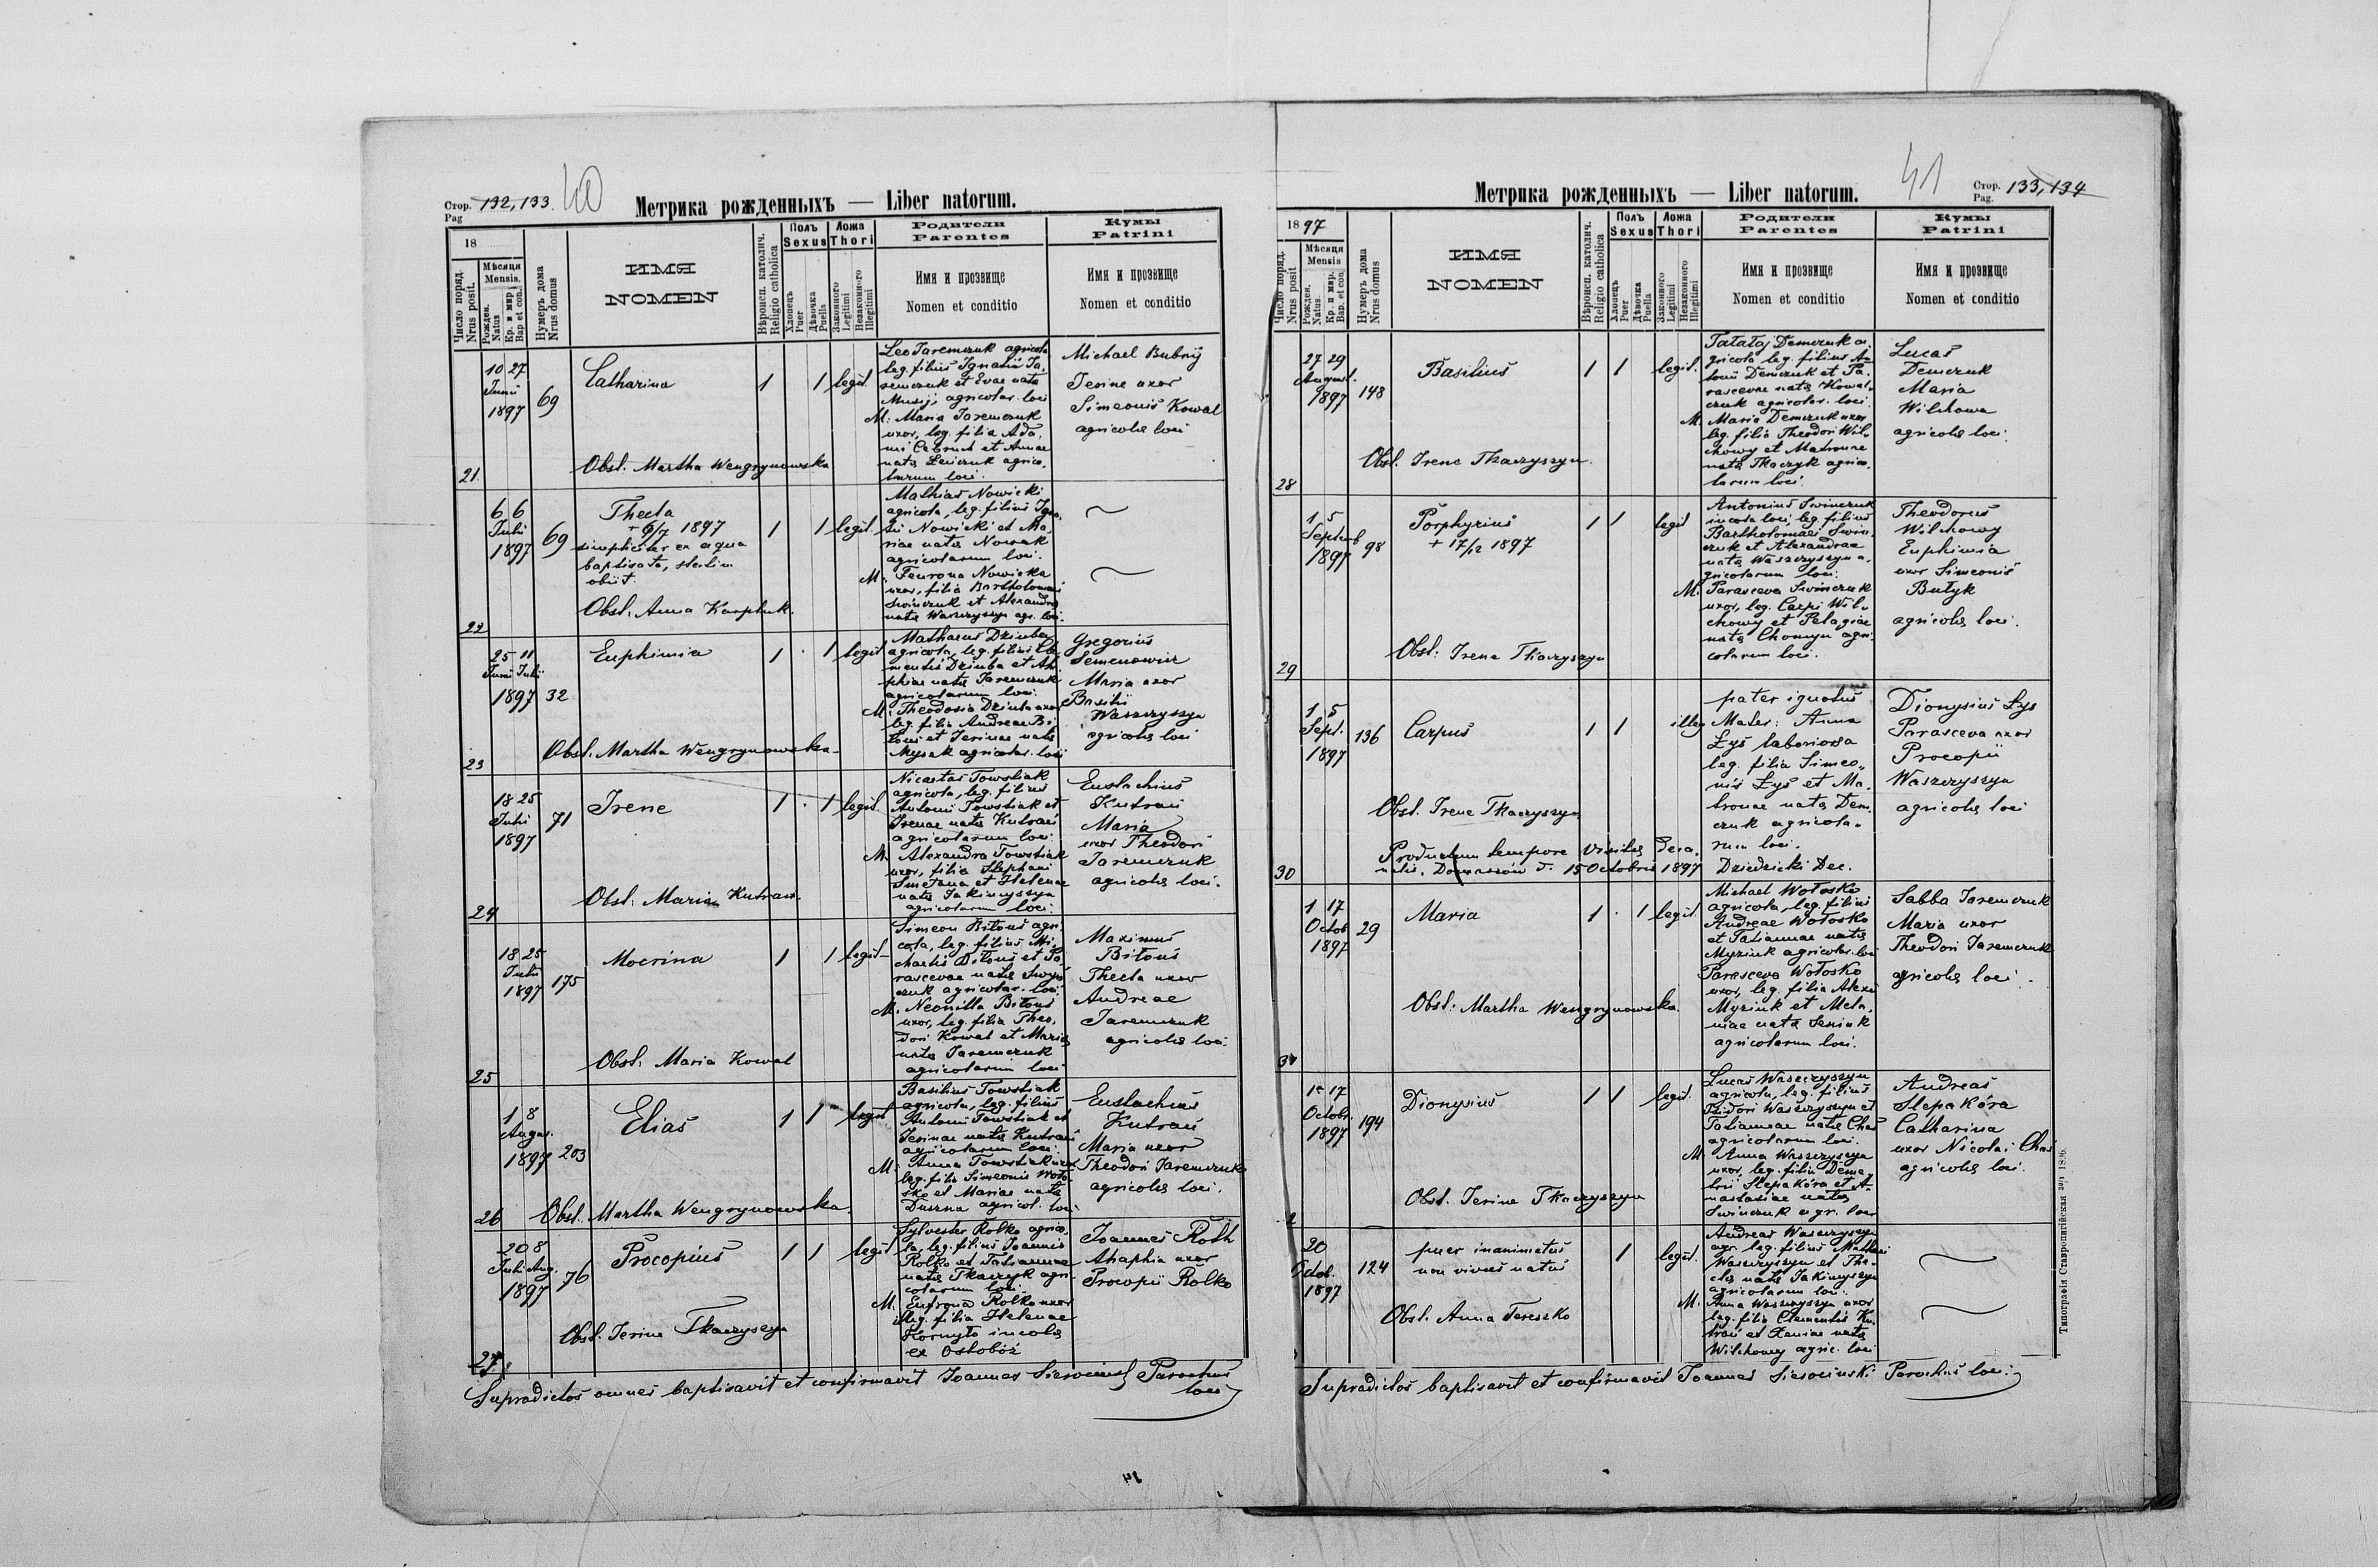 Стор. 132, 133.
Pag
40
Метрика рожденныхъ — Liber natorum.
18
Число поряд.
Nrus posit.
Мѣсяця
Mensis.
Рожден.
Natus
Кр. и мир.
Bap et con.
Нумеръ дома
Nrus domus
ИМЯ
NOMEN
Вѣроисп. католич.
Religio catholica
Полъ
Sexus
Хлопецъ
Puer
Дѣвочка
Puella
Ложа
Thori
Законного
Legitimi
Незаконного
Illegitimi
Родители
Parentes
Имя и прозвище
Nomen et conditio
Кумы
Patrini
Имя и прозвище
Nomen et conditio
21.
10 27
Junii
1897
69
Catharina
1 1 legit.
Obst. Martha Wengrynowska
Leo Jaremczuk agricola
leg. filius Ignatii Ja,
remczuk et Evae nata
Musij, agricolar. loci
M. Maria Jaremczuk
uxor, leg. filia Ada,
mi et Annae
nata agrico,
larum loci.
Michael Bubnij
Irine uxor
Simeonis Kowal
agricolæ loci
22
6 6
Julii
1897
69
Thecla
+ 6/7 1897
simpliciter ex aqua
baptisata, statim
obiit.
1 1 legit.
Obst. Anna Karpluk.
Mathias Nowicki
agricola, leg. filius Igna,
tii Nowicki et Ma,
riae nata Nowak
agricolarum loci.
M. Fevrona Nowicka
uxor, filia Bartholomaei
Swinczuk et Alexandra
nata Waszczyszyn agr. loci.
23
25 11
Junii Julii
1897
32
Euphimia
1 1 legit
Obst. Martha Wengrynowska
Mathaeus Dziuba
agricola, leg. filius Cle,
mentis Dziuba et Aha
phiae nata Jaremczuk
agricolarum loci.
M. Theodosia Dziuba uxor
leg. filia Andreae Bi
et Irinae nata
Mysak agricolar. loci
Gregorius
Semenowicz
Maria uxor
Basilii
Waszczyszyn
agricolæ loci
24
18 25
Julii
1897
71
Irene
1 1 legit.
Obst. Maria Kutrań.
Nicetas Towstiak
agricola, leg. filius
Antonii Towstiak et
Irenae nata Kutrań
agricolarum loci.
M. Alexandra Towstiak
uxor, filia Stephani
Smetana et Helenae
nata Jakimyszyn
agricolarum loci.
Eustachius
Kutrań
Maria
uxor Theodori
Jaremczuk
agricolæ loci.
25
18 25
Julii
1897
175
Mocrina
1 1 legit
Obst. Maria Kowal
Simeon Bitous agri,
cola, leg. filius Mi,
chaelis Bitous et Pa,
rascevae nata
czuk agricolar. loci.
M. Neonilla Bitous
uxor, leg. filia Theo,
dori Kowal et Maria
nata Jaremczuk
agricolarum loci
Maximus
Bitous
Thecla uxor
Andreae
Jaremczuk
agricolæ loci.
26
1 8
Augus.
1897
203
Elias
1 1 legit
Obst. Martha Wengrynowska.
Basilius Towstiak
agricola, leg. filius
Antonii Towstiak et
Irinae nata Kutrań
agricolarum loci.
M. Anna Towstiak uxor
leg. filia Simeonis Woło
sko et Mariae nata
Duszna agricol. loci
Eustachius
Kutrań
Maria uxor
Theodori Jaremczuk
agricolæ loci.
27
20 8
Julii Aug.
1897
76
Procopius
1 1 legit
Obst. Irine Tkaczyszyn
Sylvester Rolko agrico,
la, leg. filius Joannis
Rolko et Tatiannae
nata Tkaczyk agri
colarum loci.
M. Eufrona Rolko uxor
illeg. filia Helenae
Kornyło incolæ
ex Ostobóż
Joannes Roth
Ahaphia uxor
Procopii Rolko
Supradictos omnes baptisavit et confirmavit Joannes Siesocinski Parochus
loci
Метрика рожденныхъ — Liber natorum.
41
Стор. 133, 134
Pag.
1897
Число поряд.
Nrus posit
Мѣсяця
Mensis
Рожден.
Natus.
Кр. и мир.
Bap. et con.
Нумеръ дома
Nrus domus
ИМЯ
NOMEN
Вѣроисп. католич.
Religio catholica
Полъ
Sexus
Хлопецъ
Puer
Дѣвочка
Puella
Ложа
Thori
Законного
Legitimi
Незаконного
Illegitimi
Родители
Parentes
Имя и прозвище
Nomen et conditio
Кумы
Patrini
Имя и прозвище
Nomen et conditio
28
27 29
August.
1897
148
Basilius
1 1 legit.
Obst. Irene Tkaczyszyn.
Demczuk a
gricola leg. filius An
tonii Demczuk et Pa,
rascevae nata Kowal,
czuk agricolar. loci.
M. Maria Demczuk uxor
leg. filia Theodori Wil,
chowy et Matronae
nata Tkaczyk agrico,
larum loci.
Lucas
Demczuk
Maria
Wilchowa
agricolæ loci.
29
1 5
Septemb
1897
98
Porphyrius
+ 17/12 1897
1 1 legit
Obst: Irene Tkaczyszyn
Antonius Swinczuk
incola loci, leg. filius
Bartholomaei Swin,
czuk et Alexandrae
nata Waszczyszyn a,
gricolarum loci.
M. Parasceva Swinczuk
uxor, leg. Carpi Wil,
chowy et Pelagiae
nata Chomyn agri
colarum loci.
Theodorus
Wilchowy
Euphimia
uxor Simeonis
Butyk
agricolæ loci.
30
1 5
Sept.
1897
136
Carpus
1 1 illeg
Obst. Irene Tkaczyszyn
pater ignotus
Mater: Anna
Łys laboriosa
leg. filia Simeo,,
nis Łys et Ma,
tronae nata Dem,
czuk agricola,
rum loci.
Dionysius Łys
Parasceva uxor
Procopii
Waszczyszyn
agricolæ loci
Productum tempore visitæ deca,
natis. Domaszów d. 15 Octobris 1897 Dziedzicki Dec.
31
1 17
Octob
1897
29
Maria
1 1 legit
Obst: Martha Wengrynowska.
Michael Wołosko
agricola, leg. filius
Andreae Wołosko
et Tatiannae nata
Myziuk agricolar. loci
Parasceva Wołosko
uxor, leg. filia Alexii
Myziuk et Mela,
niae nata Seniuk
agricolarum loci.
Sabba Jaremczuk
Maria uxor
Theodori Jaremczuk
agricolæ loci.
2
17
Octobr.
1897
194
Dionysius
1 1 legit.
Obst. Irine Tkaczyszyn
Lucas Waszczyszyn
agricola, leg. filius
Isidori Waszczyszyn et
Tatiannae nata Chas
agricolarum loci.
M. Anna Waszczyszyn
uxor, leg. filia Deme,
trii Slepakóra et A,
nastasiae nata
Swinczuk agr. loci
Andreas
Slepakóra
Catharina
uxor Nicolai Chas
agricolæ loci.
20
Octob.
1897
124
puer inanimatus
non vivus natus
1 legit.
Obst. Anna Tereszko
Andreas Waszczyszyn
agr. leg. filius Mathaei
Waszczyszyn et The,
clæ nata Jakimyszyn
agricolarum loci.
M. Anna Waszczyszyn uxor
leg. filia Clementis Ku,
trań et Xeniae nata
Wilchowy agric. loci
Supradictos baptisavit et confirmavit Joannes Siesocinski Parochus loci.
Типографія Ставропигійская зъ 1896.